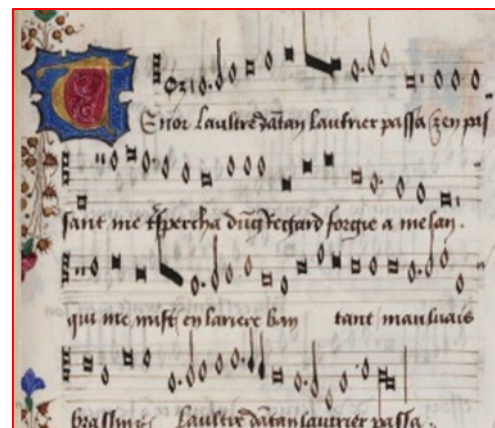 Tenor Laultre dātan lautrier passa & en pas
sant me tspercha dūg regard forgie a melan.
qui me mist en lariere ban tant mauluais
brassin Laultre dātan lautrier passa.